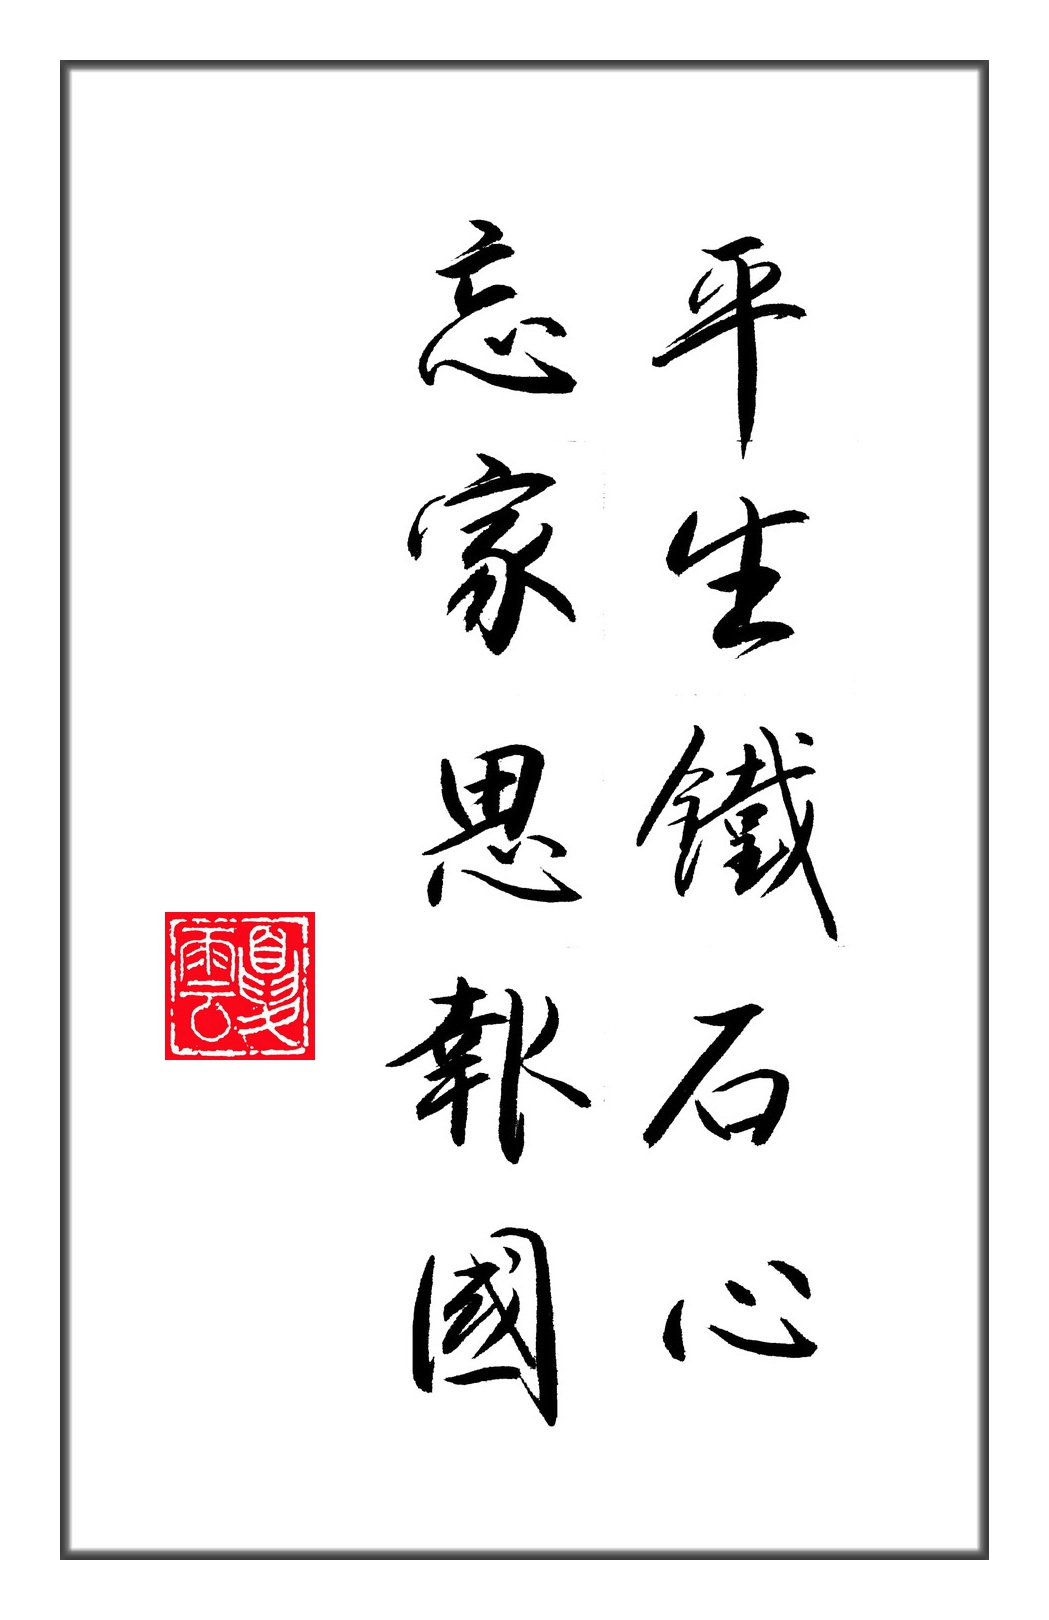 平生鐵石心
忘家思報國
夏雲